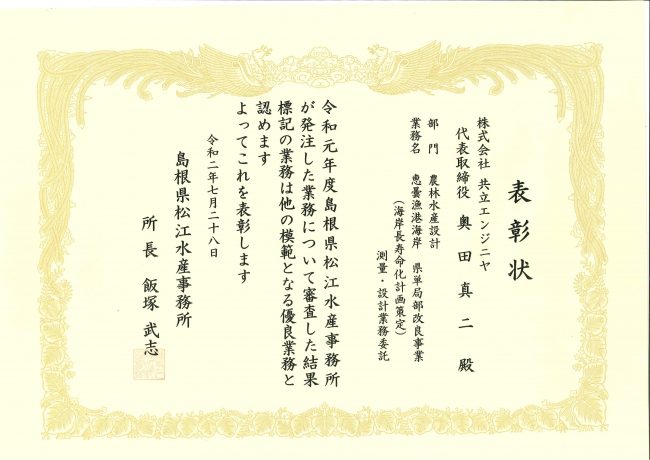 表彰状
株式会社 共立エンジニヤ
代表取締役 奥田真二 殿
部門 農林水産設計
業務名 恵曇漁港海岸 県単局部改良事業
(海岸長寿命化計画策定)
測量・設計業務委託
令和元年度島根県松江水産事務所
が発注した業務について審査した結果
標記の業務は他の模範となる優良業務と
認めます
よってこれを表彰します
令和二年七月二十八日
島根県松江水産事務所
所長 飯塚武志